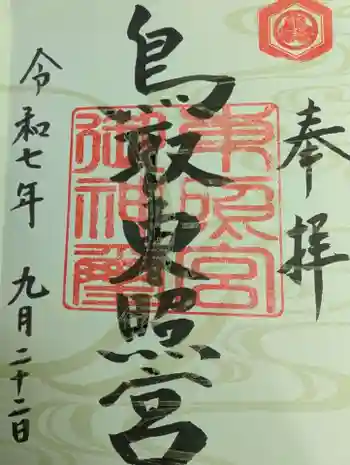 奉拝
鳥取東照宮
東照宮
御神璽
令和七年 九月二十二日